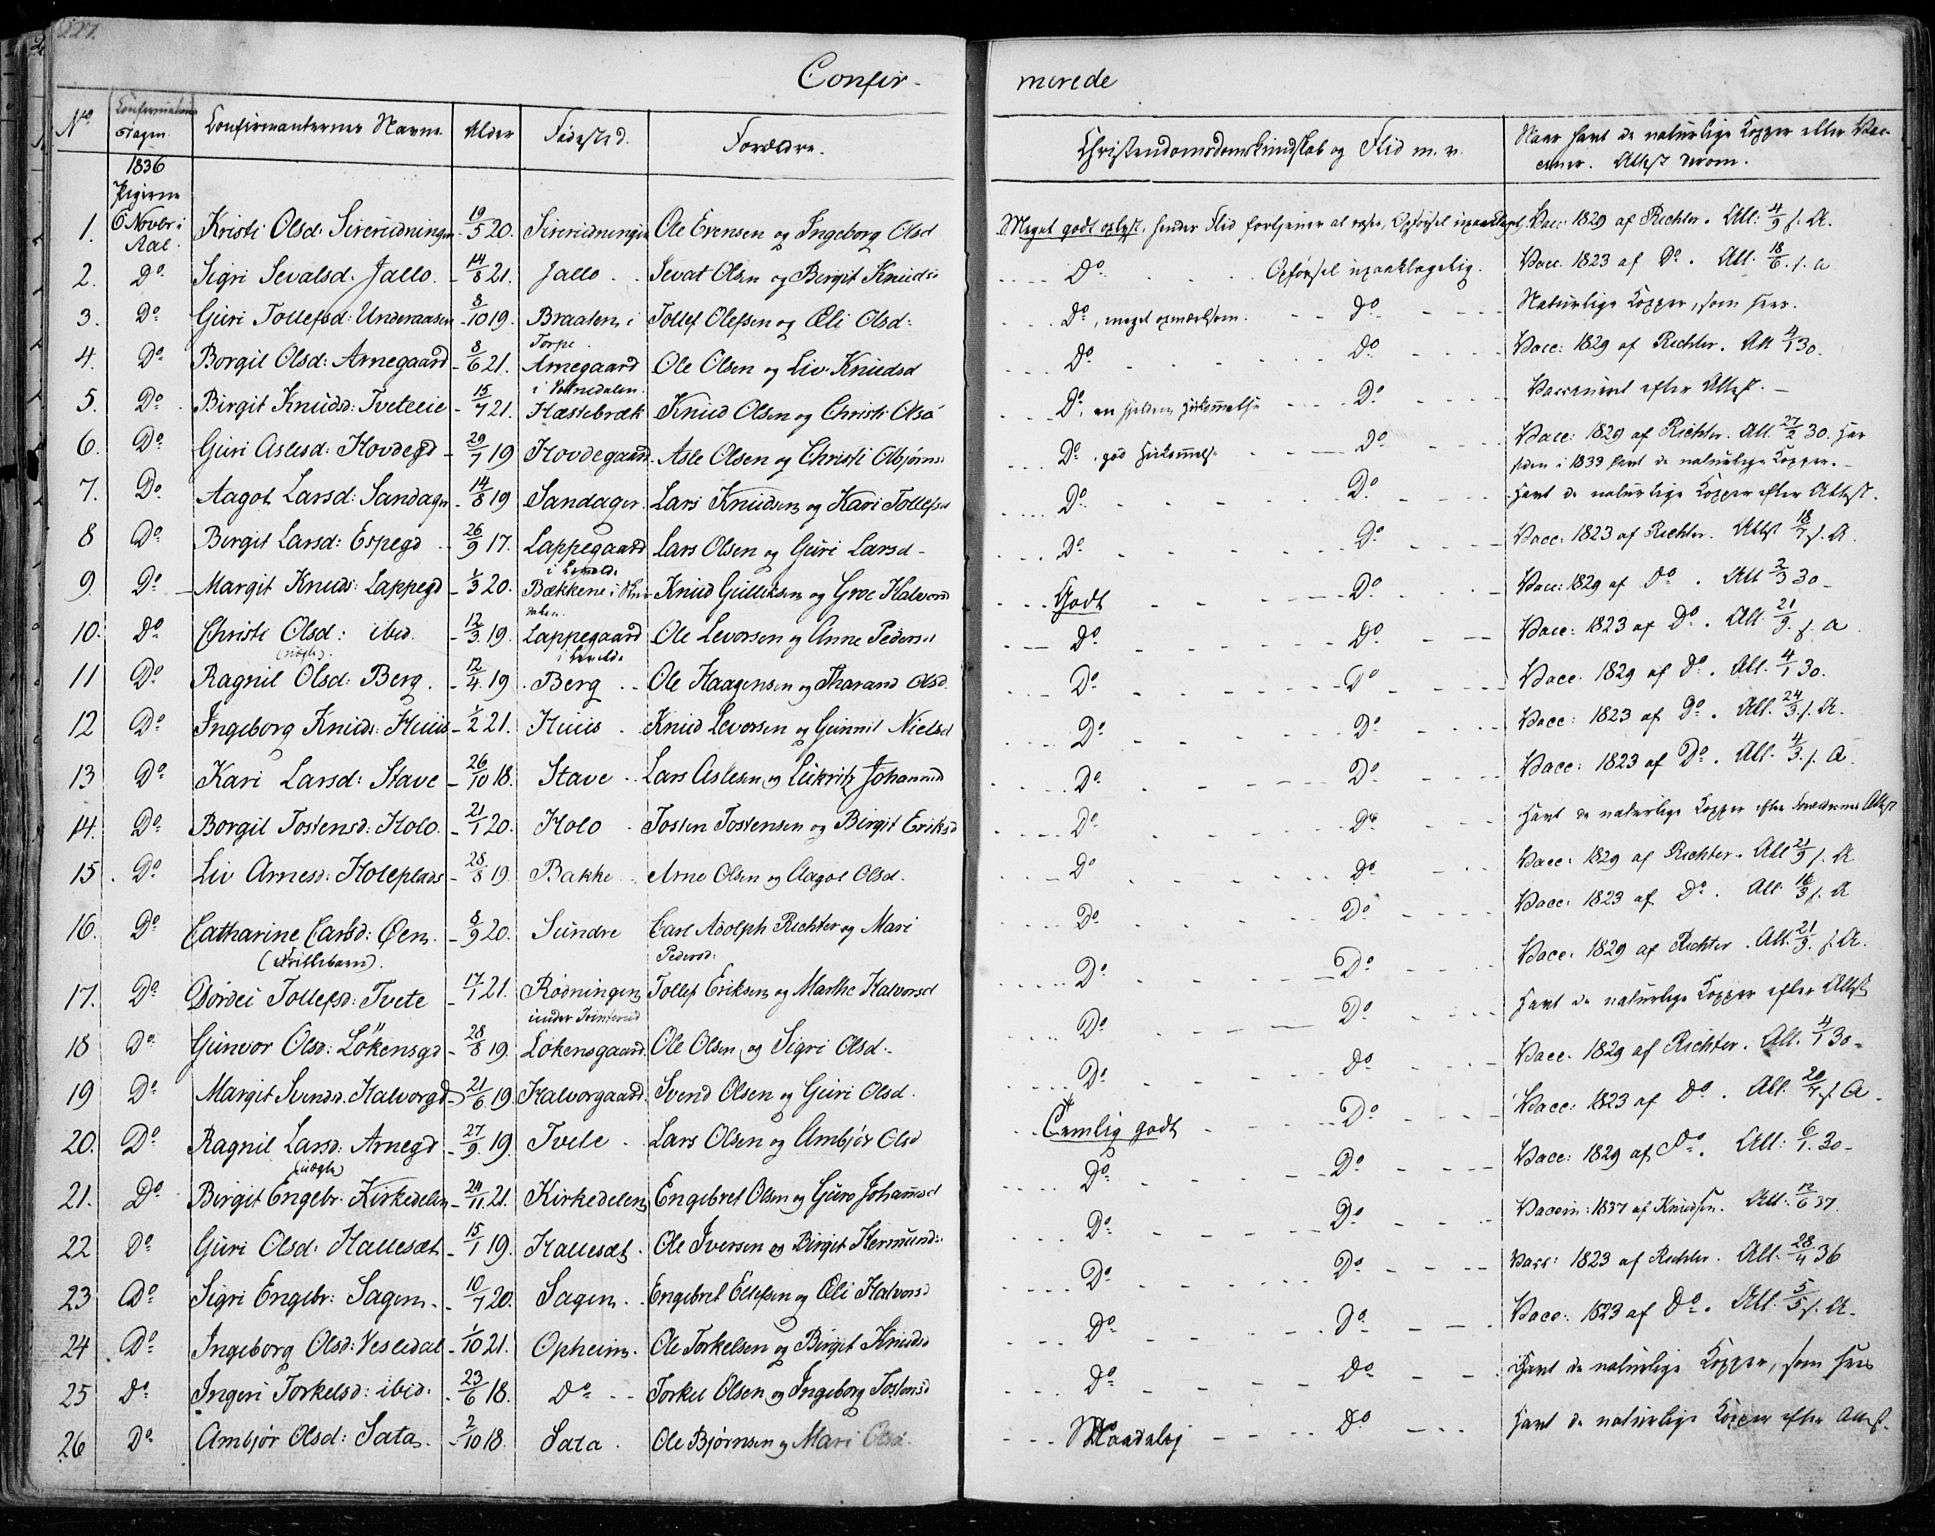 227.
Confir- merede
No Confirmations Dagen. Confirmanternes Navne Alder Fødested. Forældre. Christendomskundskab og Flid m. v. Naar havt de naturlige Kopper eller Vac-
cine. Attest derom.
1836
Pigerne
1. 6 Novbr i Aal. Kristi Olsd: - 19/5 20. Ole Evensen og Ingeborg Olsd Meget godt oplyst, hendes Flid fortjener at roses, Opførsel upaaklagel. Vacc: 1829 af Richter. Att: 4/9 f. A.
2. Do Sigri Sevatsd. Jallo. - 14/8 21. Jallo Sevat Olsen og Birgit Knudsd Do Opførsel upaaklagelig. Vacc. 1823 af Do. Att: 18/6 f. a
3. Do Guri Tollefsd: Underaasen 8/10 19. Braaten i Torpe. Tollef Olefsen og Eli Olsd: Do, meget opmærksom. do Naturlige Kopper, som sees.
4. Do Borgil Olsd: Arnegaard - 8/6 21. Arnegaard i Vatnedalen. Ole Olsen og Liv Knudsd Do Do Vacc: 1829 af Richter. Att 4/1 30.
5. Do Birgit Knudsd: Tveteeie - 15/7 21. Hæstebræk Knud Olsen og Christi Olsd Do, en sjelden Hukommelse Do Vaccineret efter Attest.
6. Do Guri Aslesd: Hovdegd - 29/7 19 Hovdegaard. Asle Olsen og Christi Asbjørns Do, god Hukommelse Do Vacc: 1829 af Richter. Att. 27/2 30. Har
siden i 1833 havt de naturlige Kopper.
7. Do Aagot Larsd: Sandager - 14/8 19 Sandager. Lars Knudsen og Kari Tollefsd Do Do Havt de naturlige Kopper efter Attest.
8 Do Birgit Larsd: Espegd - 26/9 17. Lappegaard i Leveld. Lars Olsen og Guri Larsd - Do Do Vacc: 1823 af Richter. Att: 18/7 f. A.
9. Do Margit Knuds: Lappegd - 1/3 20. Bækkene i Knud Gulliksen og Groe Halvord Godt Do Vacc: 1829 af Do. Att 2/3 30 -
10. Do Christi Olsd: ibid. - 12/3 19. Lappegaard i Leveld. Ole Levorsen og Anne Pedersd Do Do Vacc: 1823 af Do. Att. 21/9 f. a
11 Do (uægte). Ragnil Olsd: Berg. - 12/4 19. Berg Ole Haagensen og Tharand Olsd. Do Do Vacc: 1829 af Do. Att. 4/1 30.
12 Do Ingeborg Knuds: Huus - 1/2 21. Huus Knud Levorsen og Gunnil Nielsd Do Do Vacc: 1823 af Do. Att. 24/3 f. A.
13 Do Kari Larsd: Stave - 26/10 18. Stave Lars Aslesen og Johannsd Do Do Vacc: 1823 af Do. Att. 4/3 f. A.
14. Do Borgil Tostensd: Holo. - 21/1 20. Holo Tosten Tostensen og Birgit Eriksd Do Do Havt de naturlige Kopper efter Forældrenes Attest
15. Do Liv Arnesd: Holeplads - 28/8 19. Bakke Arne Olsen og Aagot Olsd. Do Do Vacc: 1829 af Richter. Att 21/9 f. A
16. Do Catharine Carlsd: Øen. - 8/9 20. Sundre Carl Adolph Richter og Mari Pedersd: Do Do Vacc: 1823 af Do. Att: 16/3 f. A
(Frillebarn).
17. Do Dordei Tollefsd: Tvete - 17/1 21. Rødningen under Tollef Eriksen og Marthe Halvorsd Do Do Vacc: 1829 af Richter. Att. 21/9. f. A.
18 Do Gunvor Olsd: Løkensgd - 28/8 19. Løkensgaard. Ole Olsen og Sigri Olsd: Do Do Havt de naturlige Kopper efter Attest
19 Do Margit Svendsd. Halvorgd - 21/6 19 Halvorgaard. Svend Olsen og Guri Olsd. Do Do Vacc. 1829 af Richter. Att. 4/1 30 -
20. Do Ragnil Larsd: Arnegd - 27/9. 19. Tvete Lars Olsen og Ambjør Olsd Temlig godt Do Vacc: 1823 af Do. Att: 20/7 f. A.
(uægte)
21. Do Birgit Engebr. Kirkedelen - 24/11 21. Kirkedelen Engebret Olsen og Guro Johannesd Do Do Vacc: 1829 af Do. Att: 6/1. 30 -
22 Do Guri Olsd: Hallesæt - 15/1 19. Hallesæt. Ole Iversen og Birgit Hermund: Do Do Vaccin: 1837 af Knudsen. Att: 12/6 37.
23 Do Sigri Engebr: Sagen. - 10/7 20. Sagen. Engebret Ellefsen og Eli Halvorsd Do Do Vacc: 1823 af Richter. Att. 28/4 36
24 Do Ingeborg Olsd: Vesledal - 1/10 21. Opheim. Ole Torkelsen og Birgit Knudsd Do Do Vacc: 1823 af Do. Att: 5/5 f. A.
25 Do Ingeri Torkelsd: ibid: - 23/6 18. Do Torkel Olsen og Ingeborg Tostensd Do Do Havt de naturlige Kopper, som sees
26 Do Ambjør Olsd: Sata. - 2/10 18. Sata. Ole Bjørnsen og Mari Olsd. Maadelig Do Havt de naturlige Kopper efter Attest.